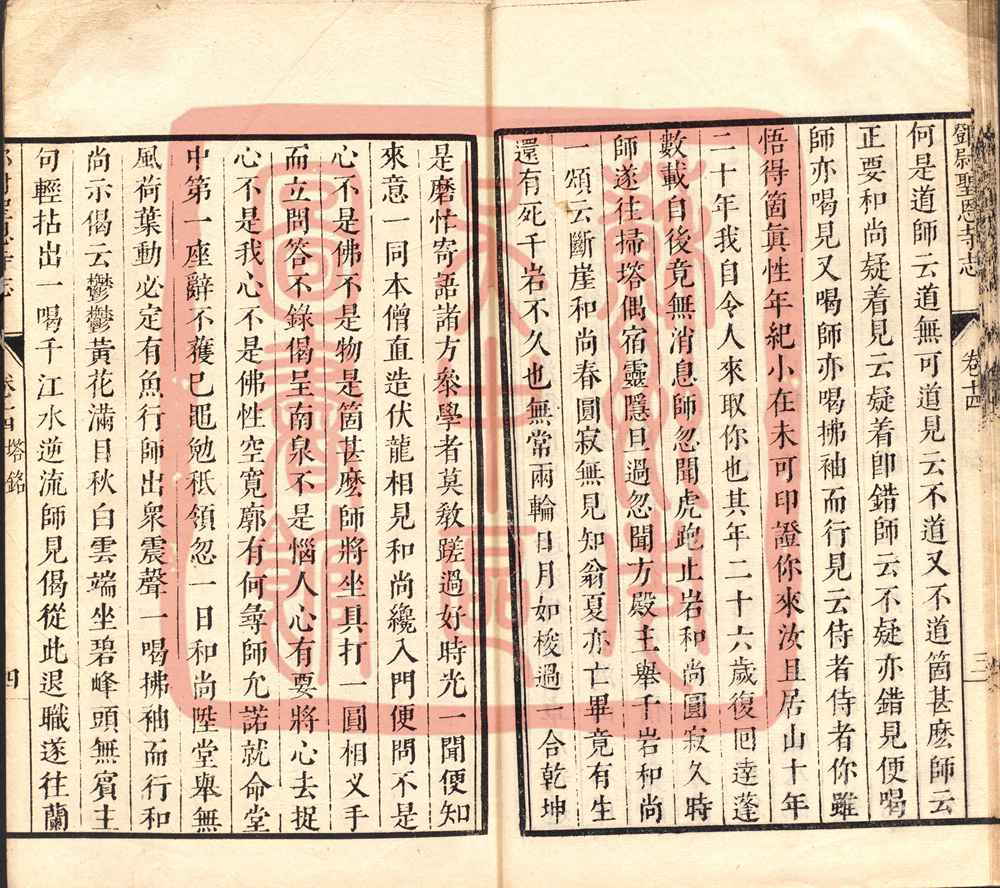 鄧尉聖恩寺志　卷十四　三
何是道師云道無可道見云不道又不道箇甚麽師云
正要和尚疑着見云疑着卽錯師云不疑亦錯見便喝
師亦喝見又喝師亦喝拂袖而行見云侍者侍者你雖
悟得箇眞性年紀小在未可印證你來汝且居山十年
二十年我自令人來取你也其年二十六歲復回逹蓬
數載自後竟無消息師忽聞虎跑止岩和尚圓寂久時
師遂往掃塔偶宿靈隱旦過忽聞方殿主舉千岩和尚
一頌云斷崖和尚春圓寂無見知翁夏亦亡畢竟有生
還有死千岩不久也無常兩輪日月如梭過一合乾坤
是磨忙寄語諸方叅學者莫敎蹉過好時光一聞便知
來意一同本僧直造伏龍相見和尚纔入門便問不是
心不是佛不是物是箇甚麽師將坐具打一圓相义手
而立問答不錄偈呈南泉不是惱人心有要將心去捉
心不是我心不是佛性空寛廓有何尋師允諾就命堂
中第一座辭不獲已黽勉秪領忽一日和尚陞堂舉無
風荷葉動必定有魚行師出衆震聲一喝拂袖而行和
尚示偈云鬱鬱黃花滿目秋白雲端坐碧峰頭無賓主
句輕拈出一喝千江水逆流師見偈從此退職遂往蘭
卷十四　塔銘　四